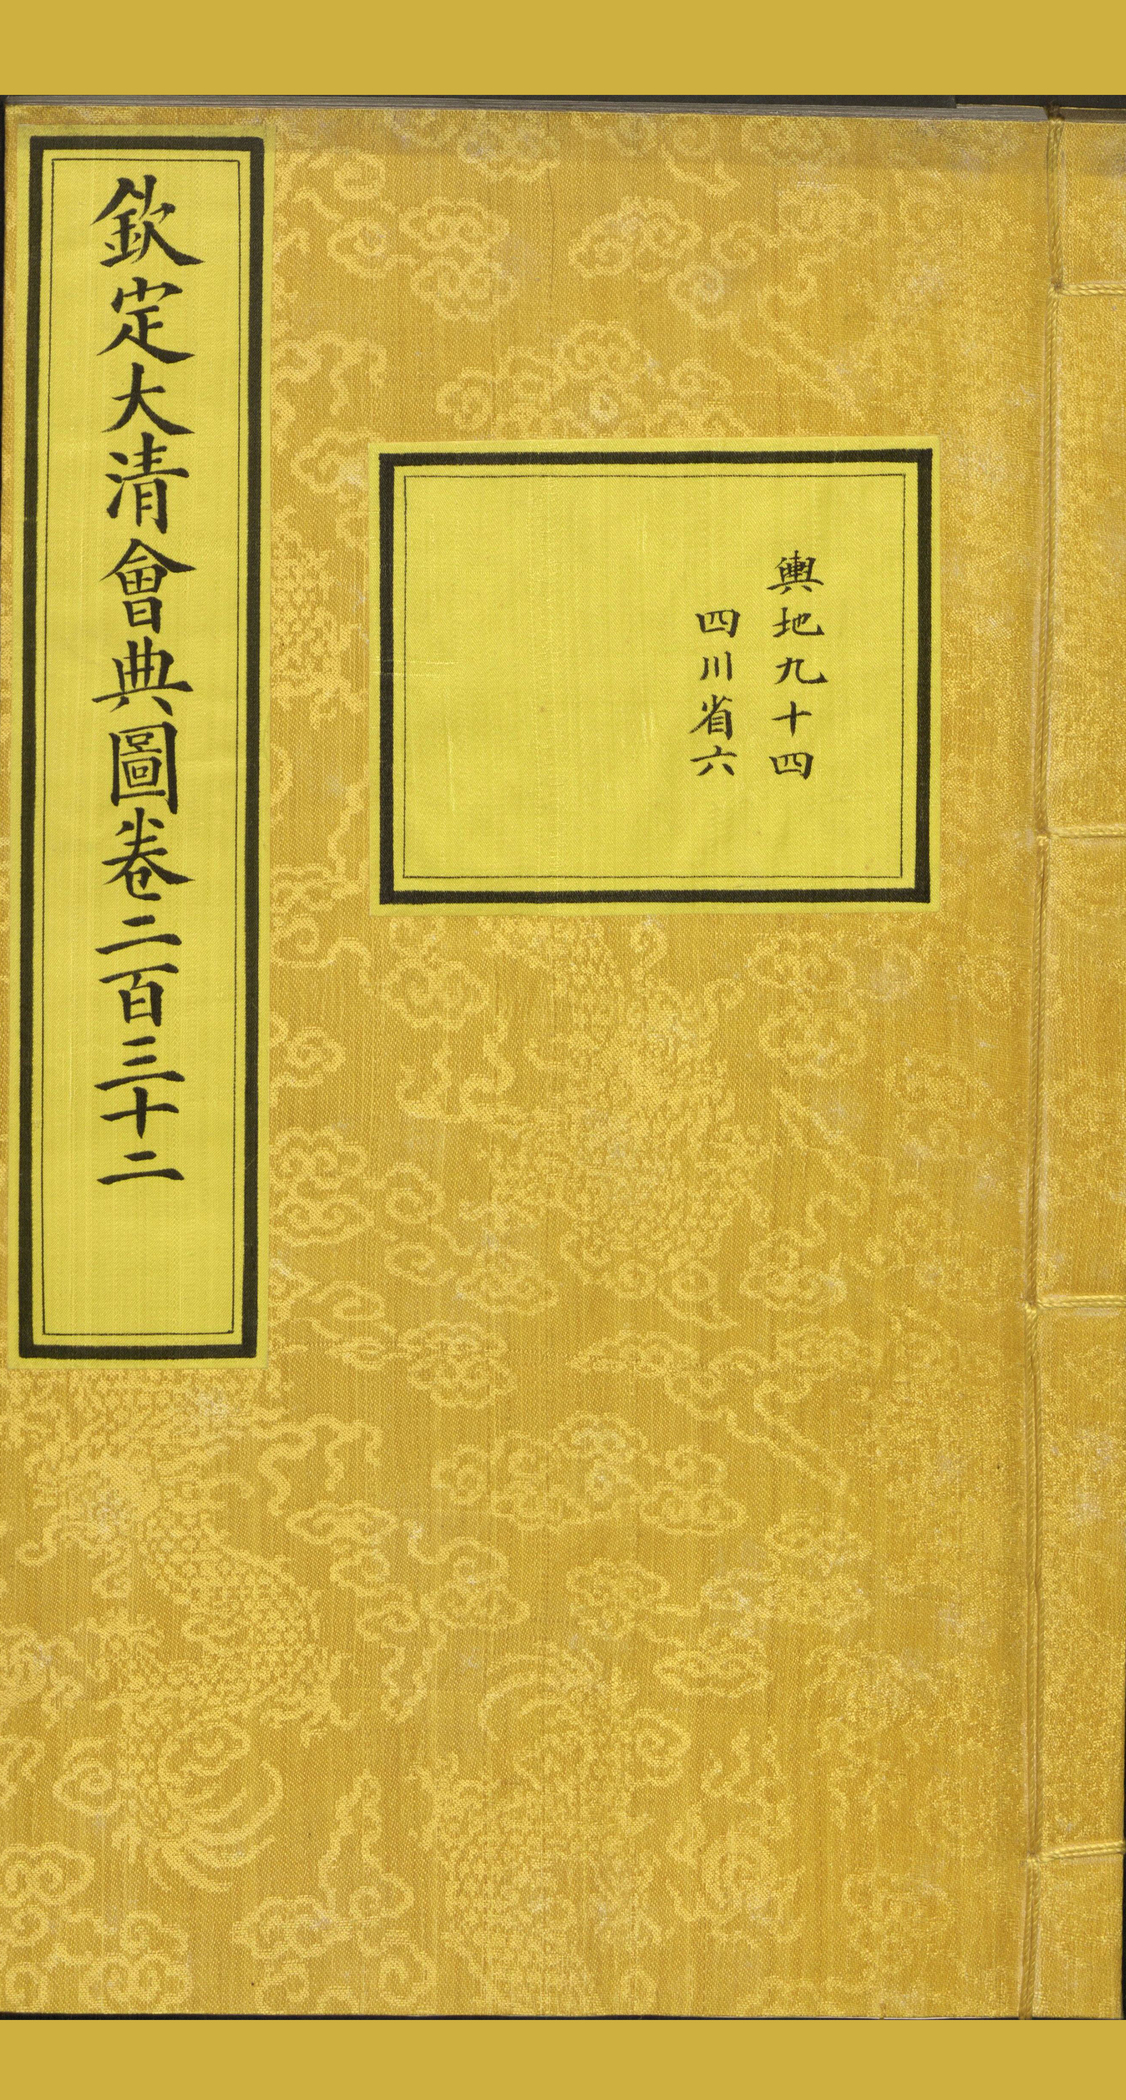 輿地九十四
四川省六
欽定大清會典圖卷二百三十二